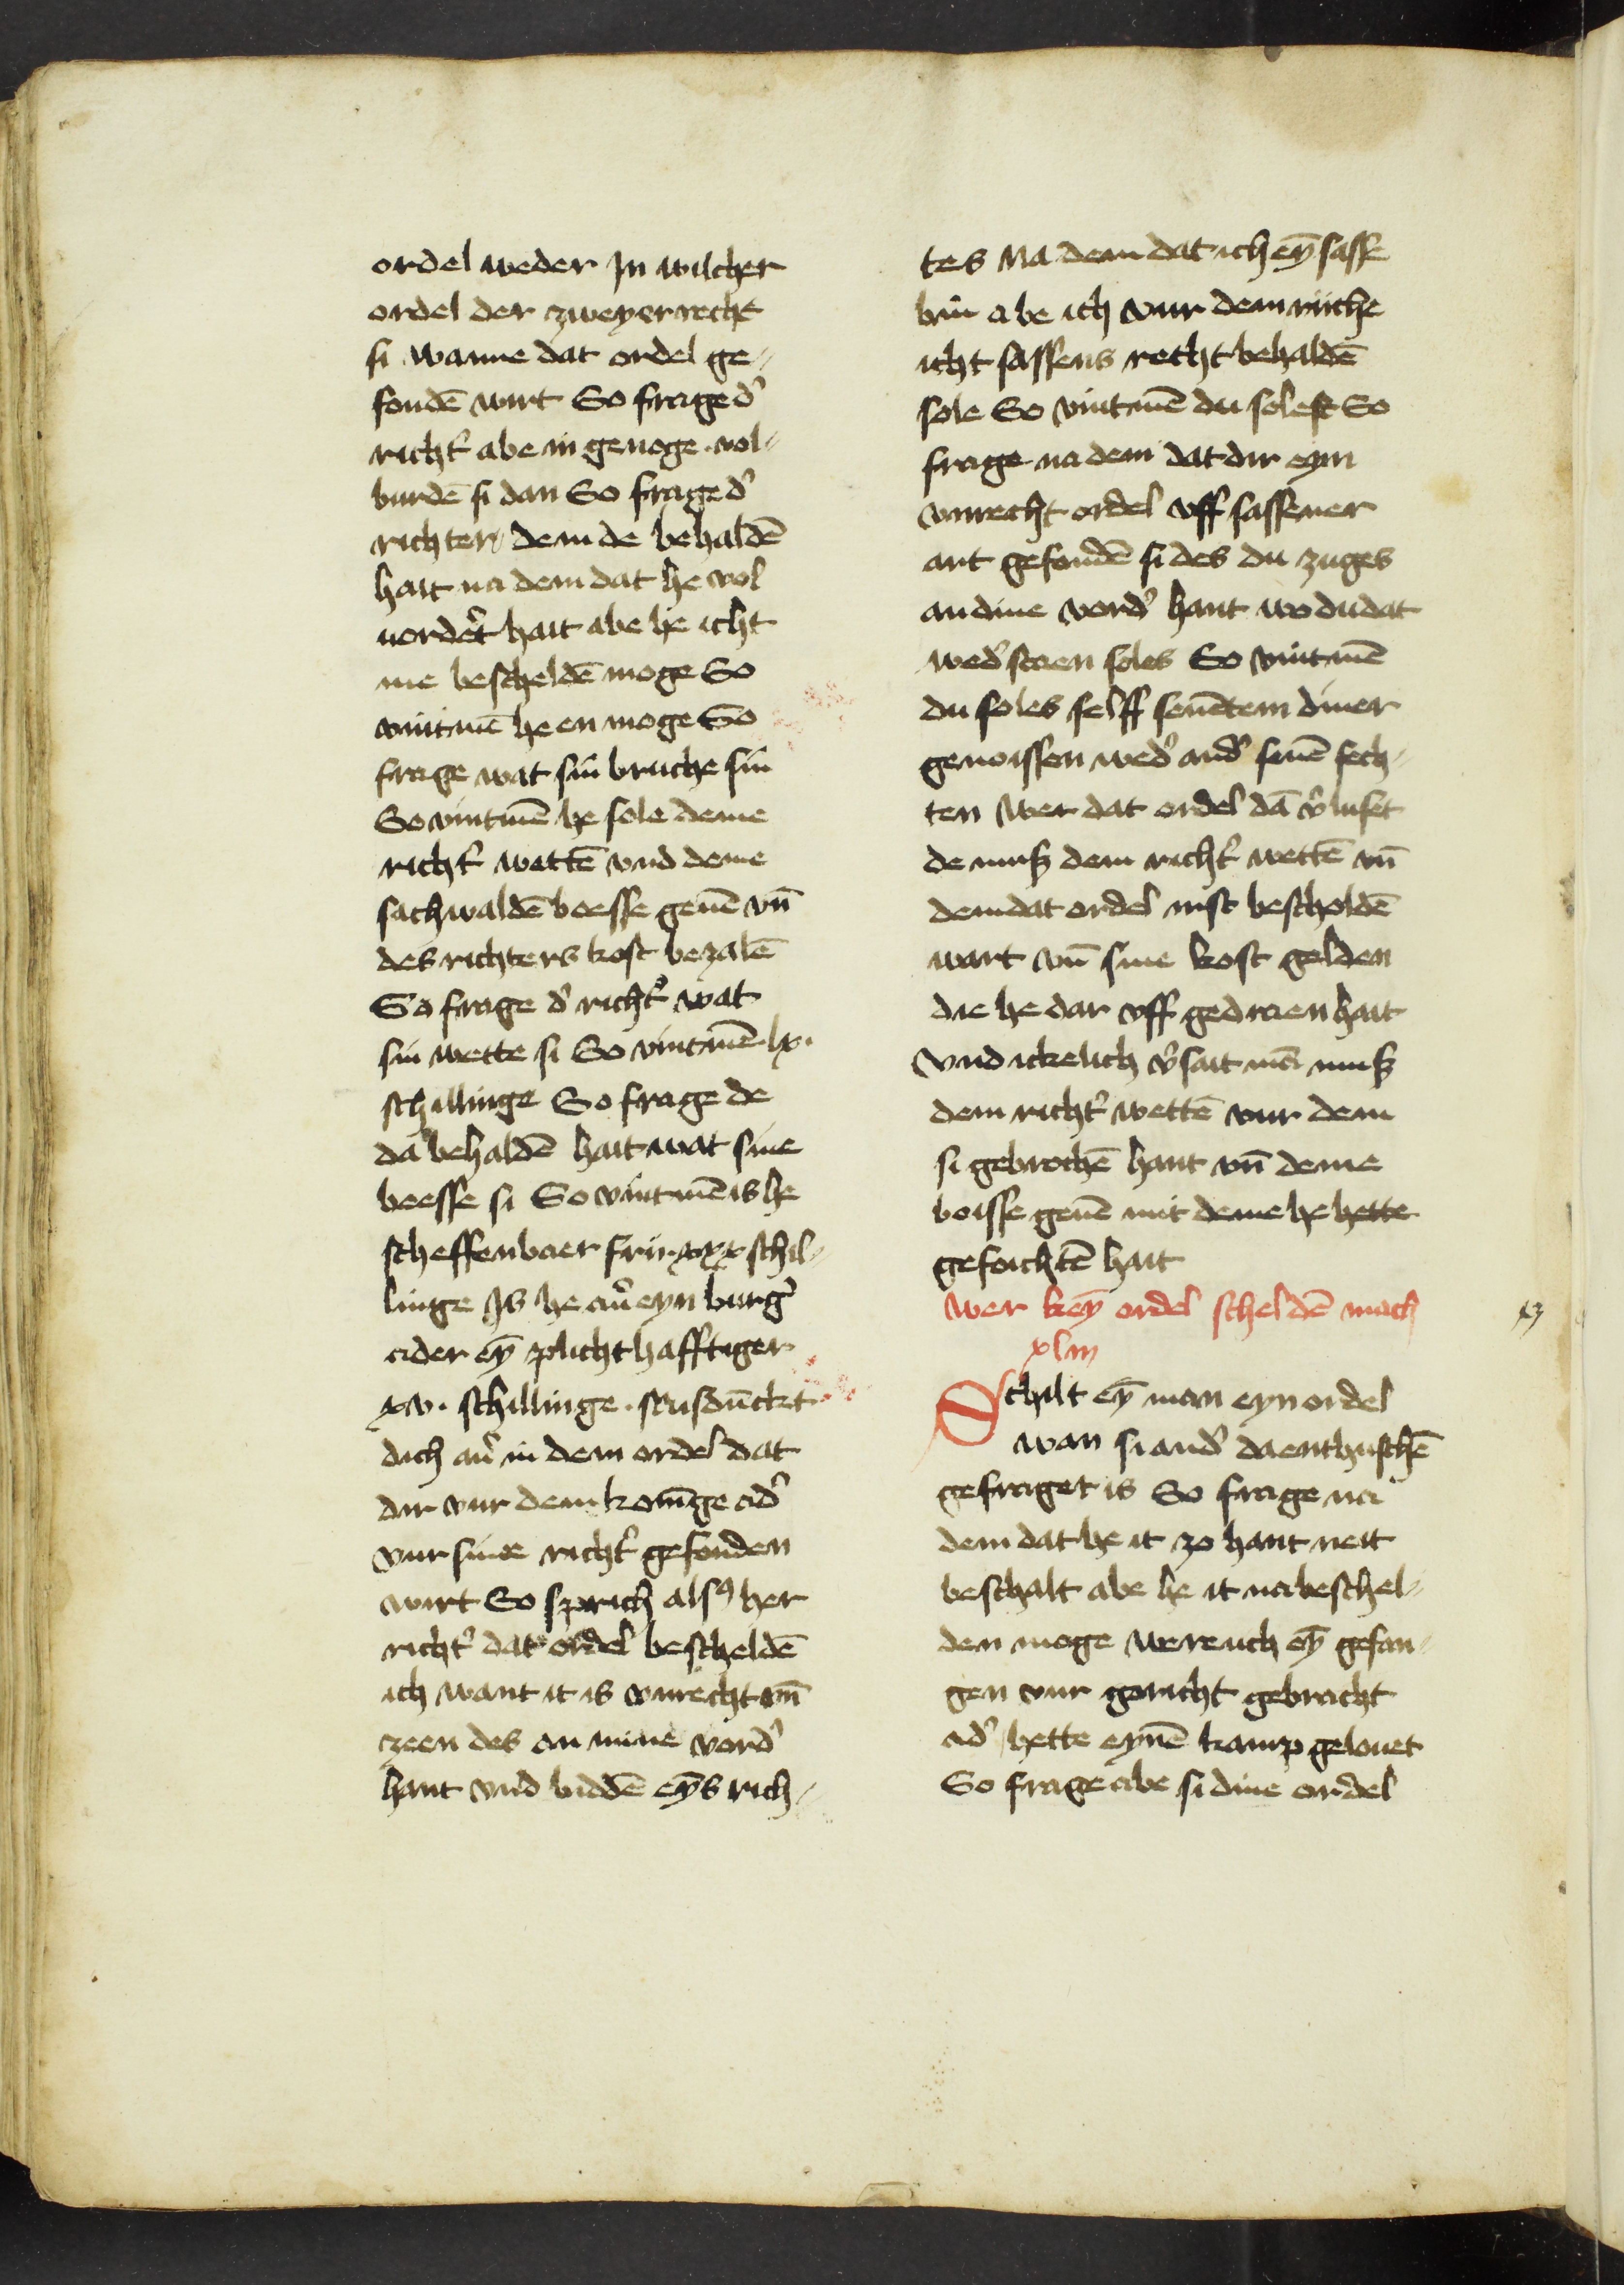 ordel weder Jn wilcher
ordel der zweyer recht
si wanne dat ordel ge-
fondē wirt So frage d'
richt' abe in genoge vol-
burdē si dan So frage d'
richter dem de behaldē
hait na dem dat he vol
uordert hait abe he icht
me bescheldē moge So
vintmē he en moge So
frage wat sin bruche sin
So vintmē he sole deme
richt' wettē vnd deme
sachwaldē boesse geuē vn̄
des richters kost bezalē
So frage d' richt' wat
sin wette si So vintmē lx.
schillinge So frage de
da behaldē hait wat sine
beesse si So vintmē is he
scheffenbaer frii xxx schil-
linge Js he au' eyn burg'
ader eȳ plichthafftiger
xv. schillinge. Misdūckt
dich au' in dem ordel dat
dir vur dem konīge ad'
vur sinne richt' gefonden
wirt So sprich als9 her
richt' dat ordel bescheldē
ich want it is vnrecht vn̄
zeen des an mine vord'
hant vnd biddē eyn̄s rich-
tes Na dem dat ich eȳ sasse
bin abe ich vur dem riiche
icht sassens recht behaldē
sole So vintmē du solest So
frage na dem dat dir eyn
vnrecht ordel vff sassener
art gefondē si des du zuges
an dine vord' hant wo du dat
wed' staen soles So vintmē
du soles selff seuēdem diner
genoissen wed' and' seuē fech-
ten wer dat ordel dā v'luset
de muß dem richt' wettē vn̄
dem dat ordel mst bescholdē
wart vn̄ sine kost gelden
die he dar vff gedraen hait
Vnd ickelich v'sait mā muß
dem richt' wettē vur dem
si gebrochē hant vn̄ deme
boisse geuē mit deme he hette
gefoichtē hait
Wer keȳ ordel scheldē mach
xlm
Schilt eȳ man eyn ordel
wan si and' da entbuschē
gefraget is So frage na
dem dat he it zo hant neit
beschalt abe he it na beschel-
den moge Were uch eȳ gefan-
gen vur gericht gebracht
ad' hette eynē kamp gelouet
So frage abe si dine ordel